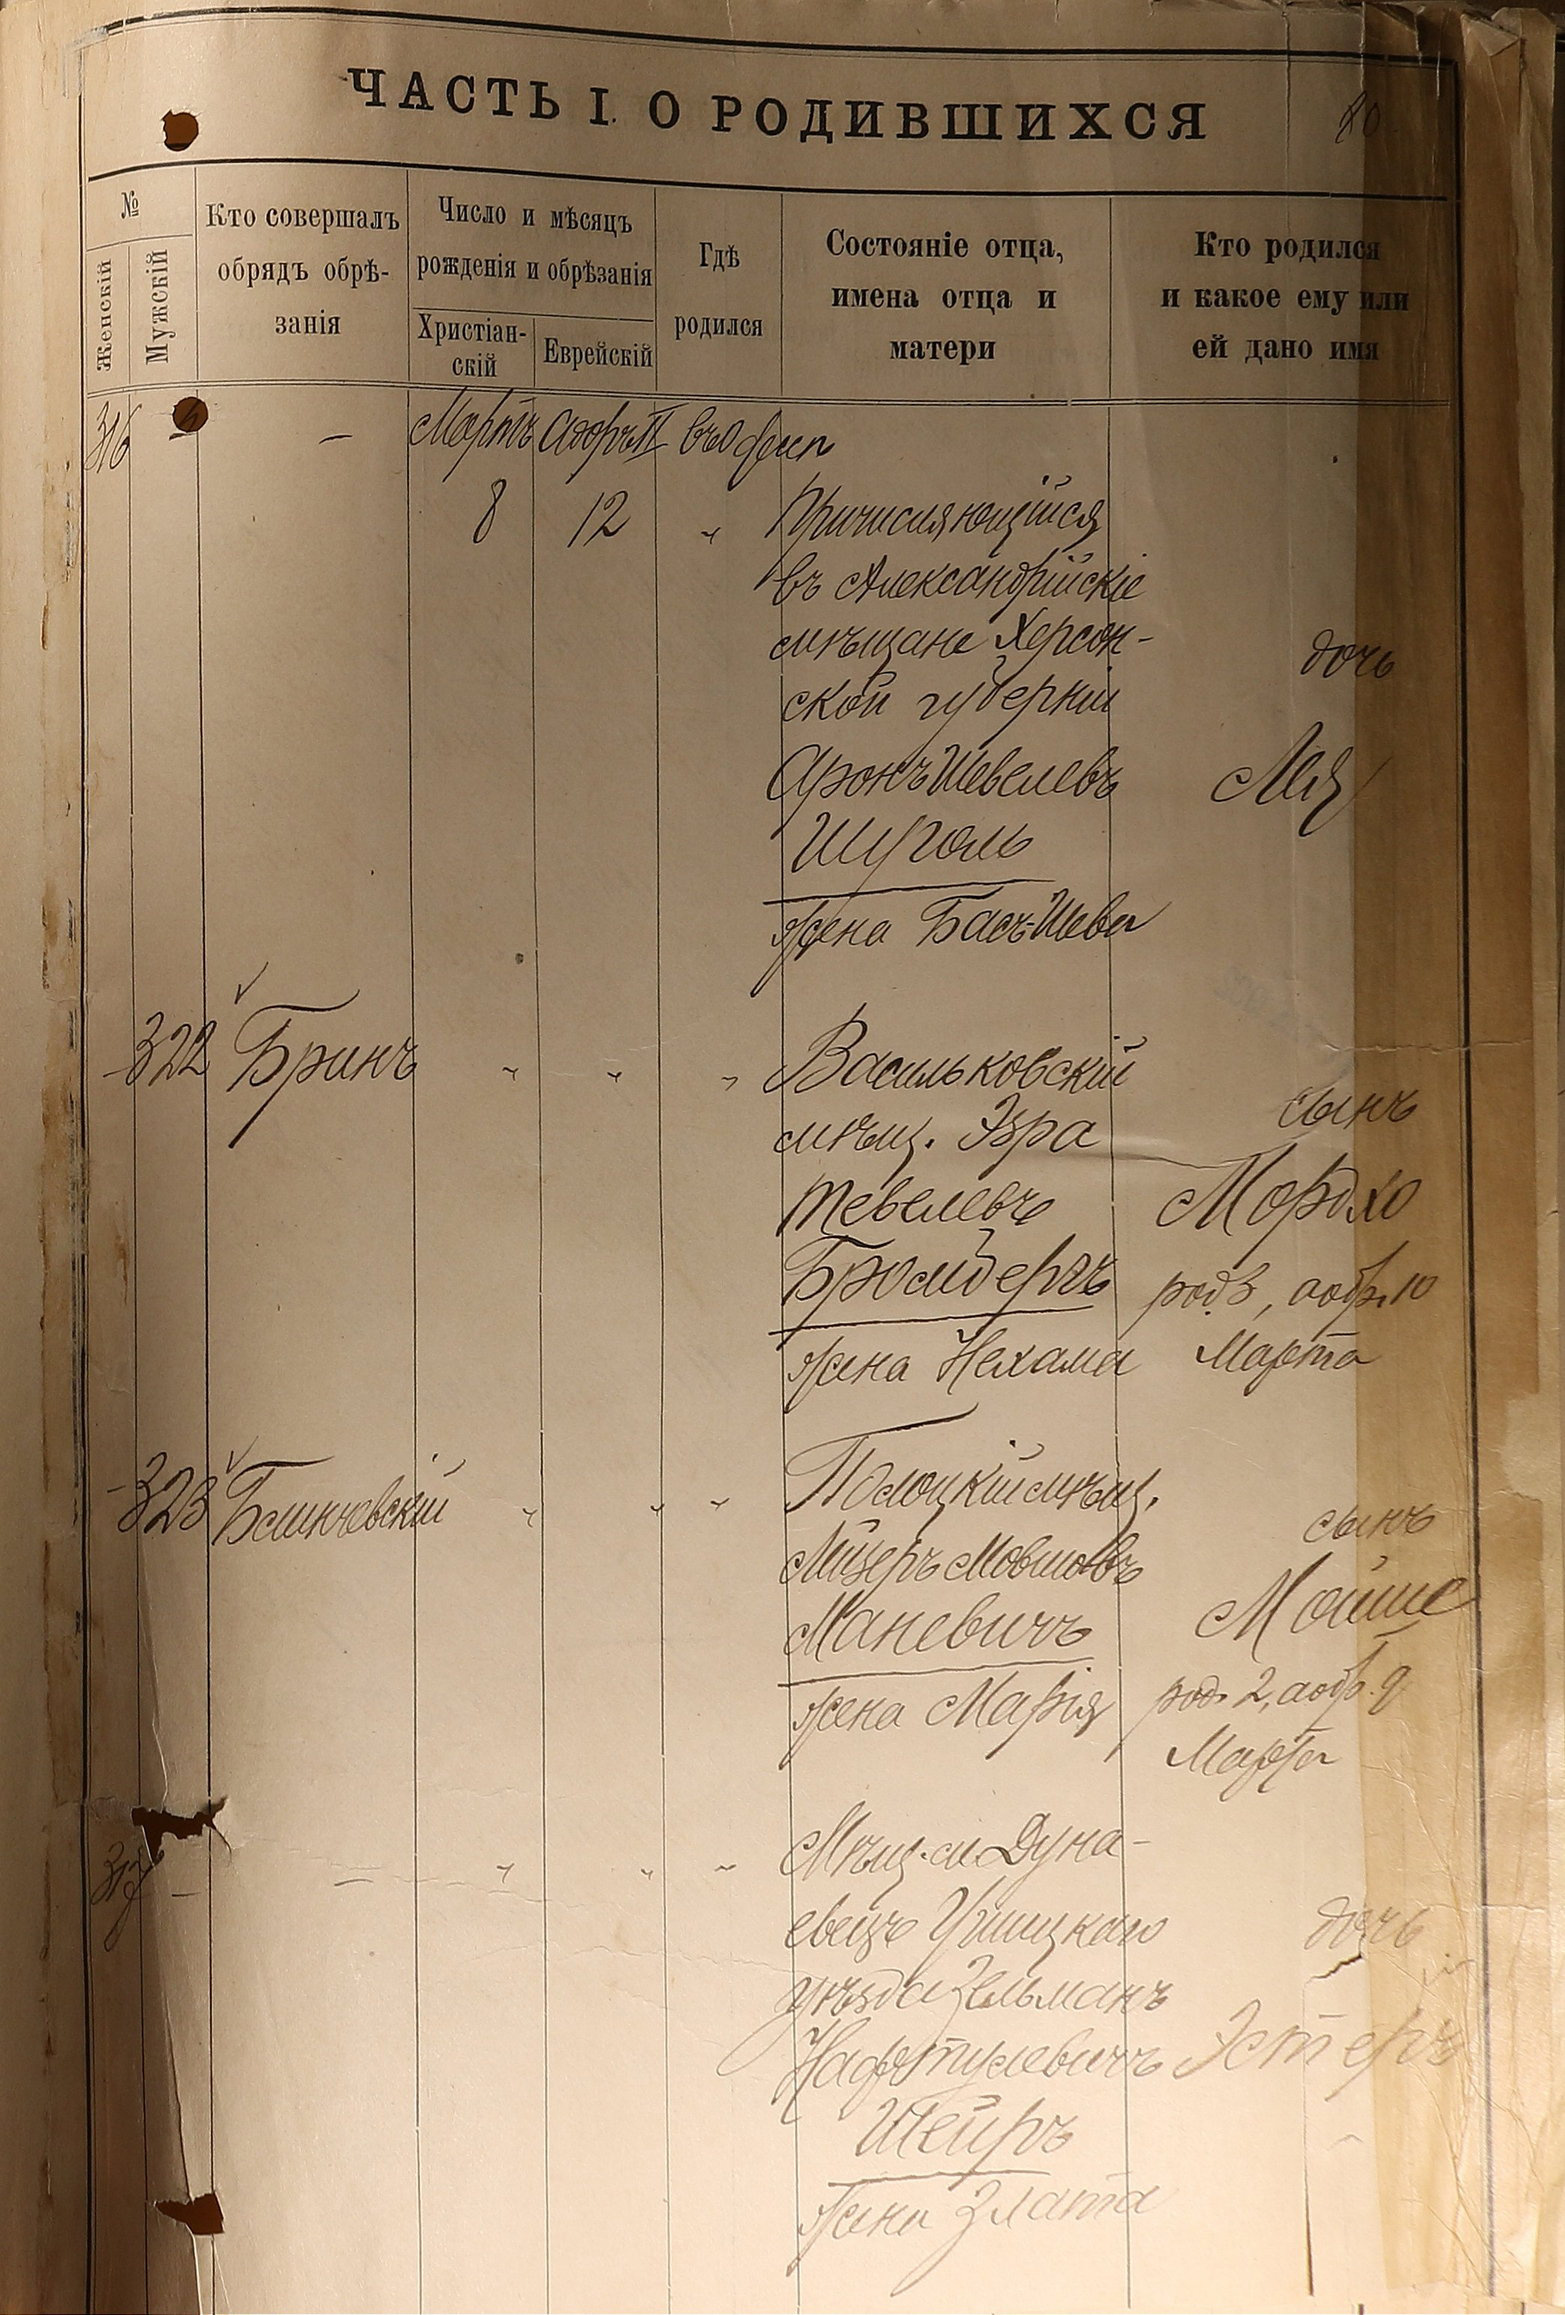 ЧАСТЬ I. О РОДИВШИХСЯ
80
№
Женскій
Мужскій
Кто совершалъ
обрядъ обрѣ-
занія
Число и мѣсяцъ
рожденія и обрѣзанія
Христіан-
скій
Еврейскій
Гдѣ
родился
Состояніе отца,
имена отца и
матери
Кто родился
и какое ему или
ей дано имя
316 – – Мартъ Адаръ II въ Одессѣ
8 12 „ Причисляющійся
въ Александрійскіе
мѣщане Херсон-
ской губерніи
дочь
Аронъ Шевелевъ
Лея
Шуголь
жена Бась-Шева
322 Бринъ „ „ „ Васильковскій
мѣщ. Эзра
сынъ
Тевелевъ
Мордхо
Бромбергъ
род. 3, а обр. 10
жена Нехама
Марта
323 „ „ „ Полоцкій мѣщ.
сынъ
Лейзеръ Мовшовъ
Маневичъ
Мойше
жена Марія
род. 2, а обр. 9
Марта
317 – – „ „ „ Мѣщ. м. Дуна-
евецъ Ушицкаго
дочь
уѣзда Зельманъ
Нафтулевичъ
Эстеръ
Шейръ
жена Злата